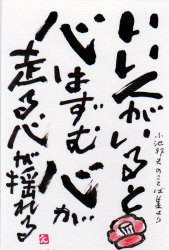 いい人がいると
心はずむ心が
走る心が揺れる
小池邦夫のことば集より
え